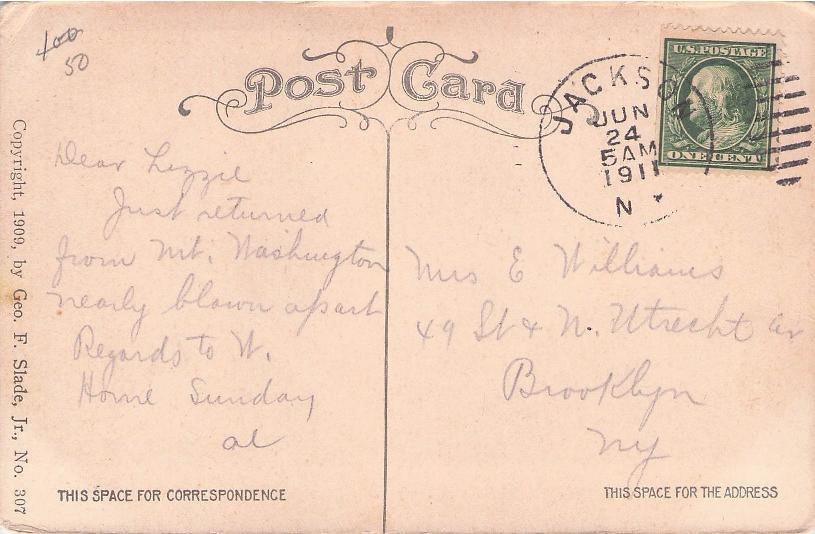 400
50
Post Card
U.S. POSTAGE
ONE CENT
JACKSON
JUN
24
5 AM
1911
N
Dear Lizzie
Just returned
from Mt. Washington
nearly blown apart
Regards to W.
Home Sunday
al
Mrs E Williams
49 St & N. Utrecht Av
Brooklyn
NY
THIS SPACE FOR CORRESPONDENCE
THIS SPACE FOR THE ADDRESS
Copyright, 1909, by Geo. F. Slade, Jr., No. 307